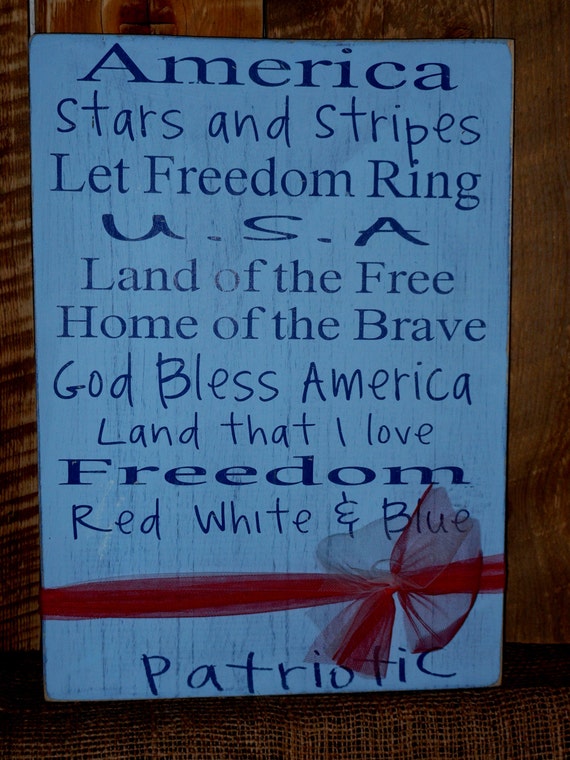 America
Stars and Stripes
Let Freedom Ring
U.S.A
Land of the Free
Home of the Brave
God Bless America
Land that I love
Freedom
Red White & Blue
Patriotic